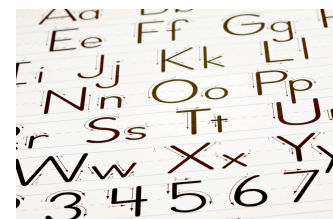 Aa Bb
Ee Ff Gg H
Ii Jj Kk Ll
Nn Oo Pp
r Ss Tt U
Ww Xx Yy
3 4 5 6 7